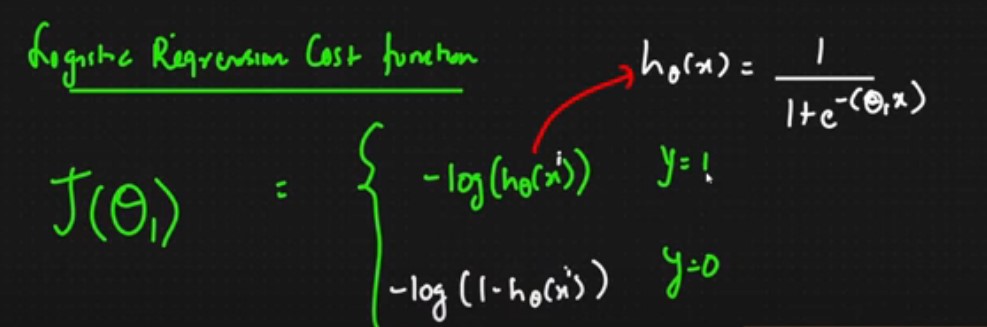 Logistic Regression Cost function
hθ(x) = 1 / 1+e^-(θ₁x)
J(θ₁) = { -log(hθ(xⁱ)) y=1
-log(1-hθ(xⁱ)) y=0